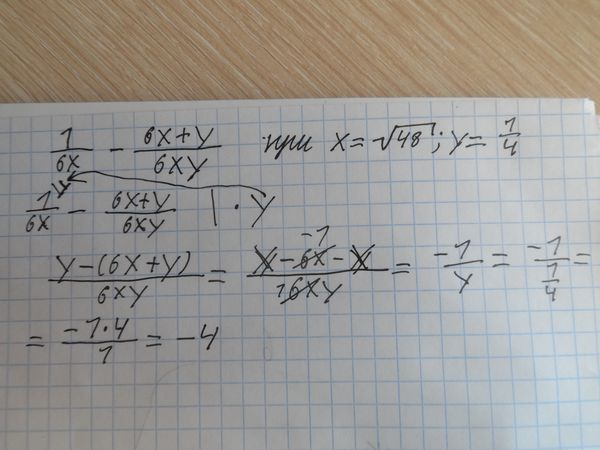 1/6x - 6x+y/6xy при x=√48; y=1/4
1/6x - 6x+y/6xy | · y
y-(6x+y)/6xy = y-6x-y/6xy = -1/y = -1/1/4 =
= -1·4/1 = -4